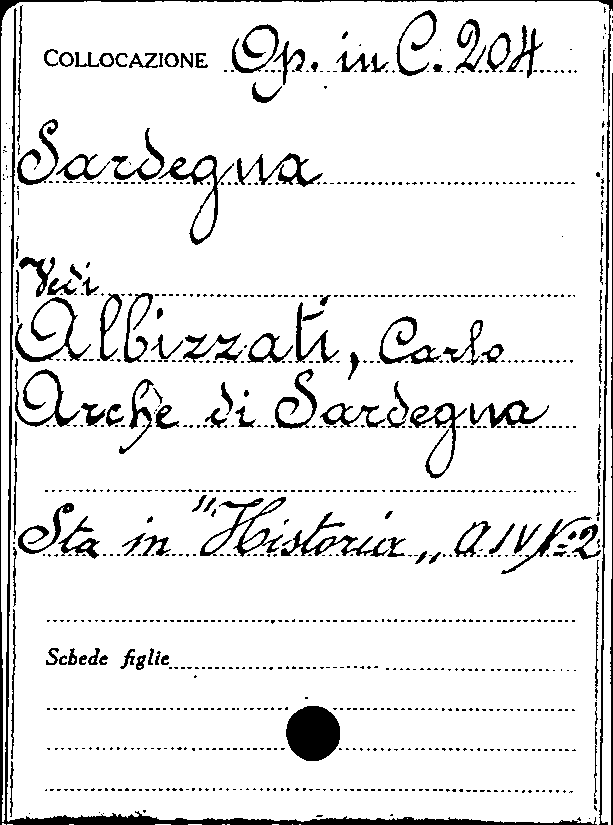 COLLOCAZIONE Op. in C. 204
Sardegna
Vedi
Albizzati, Carlo
Arche di Sardegna
Sta in "Historia„ A IV N:2
Schede figlie